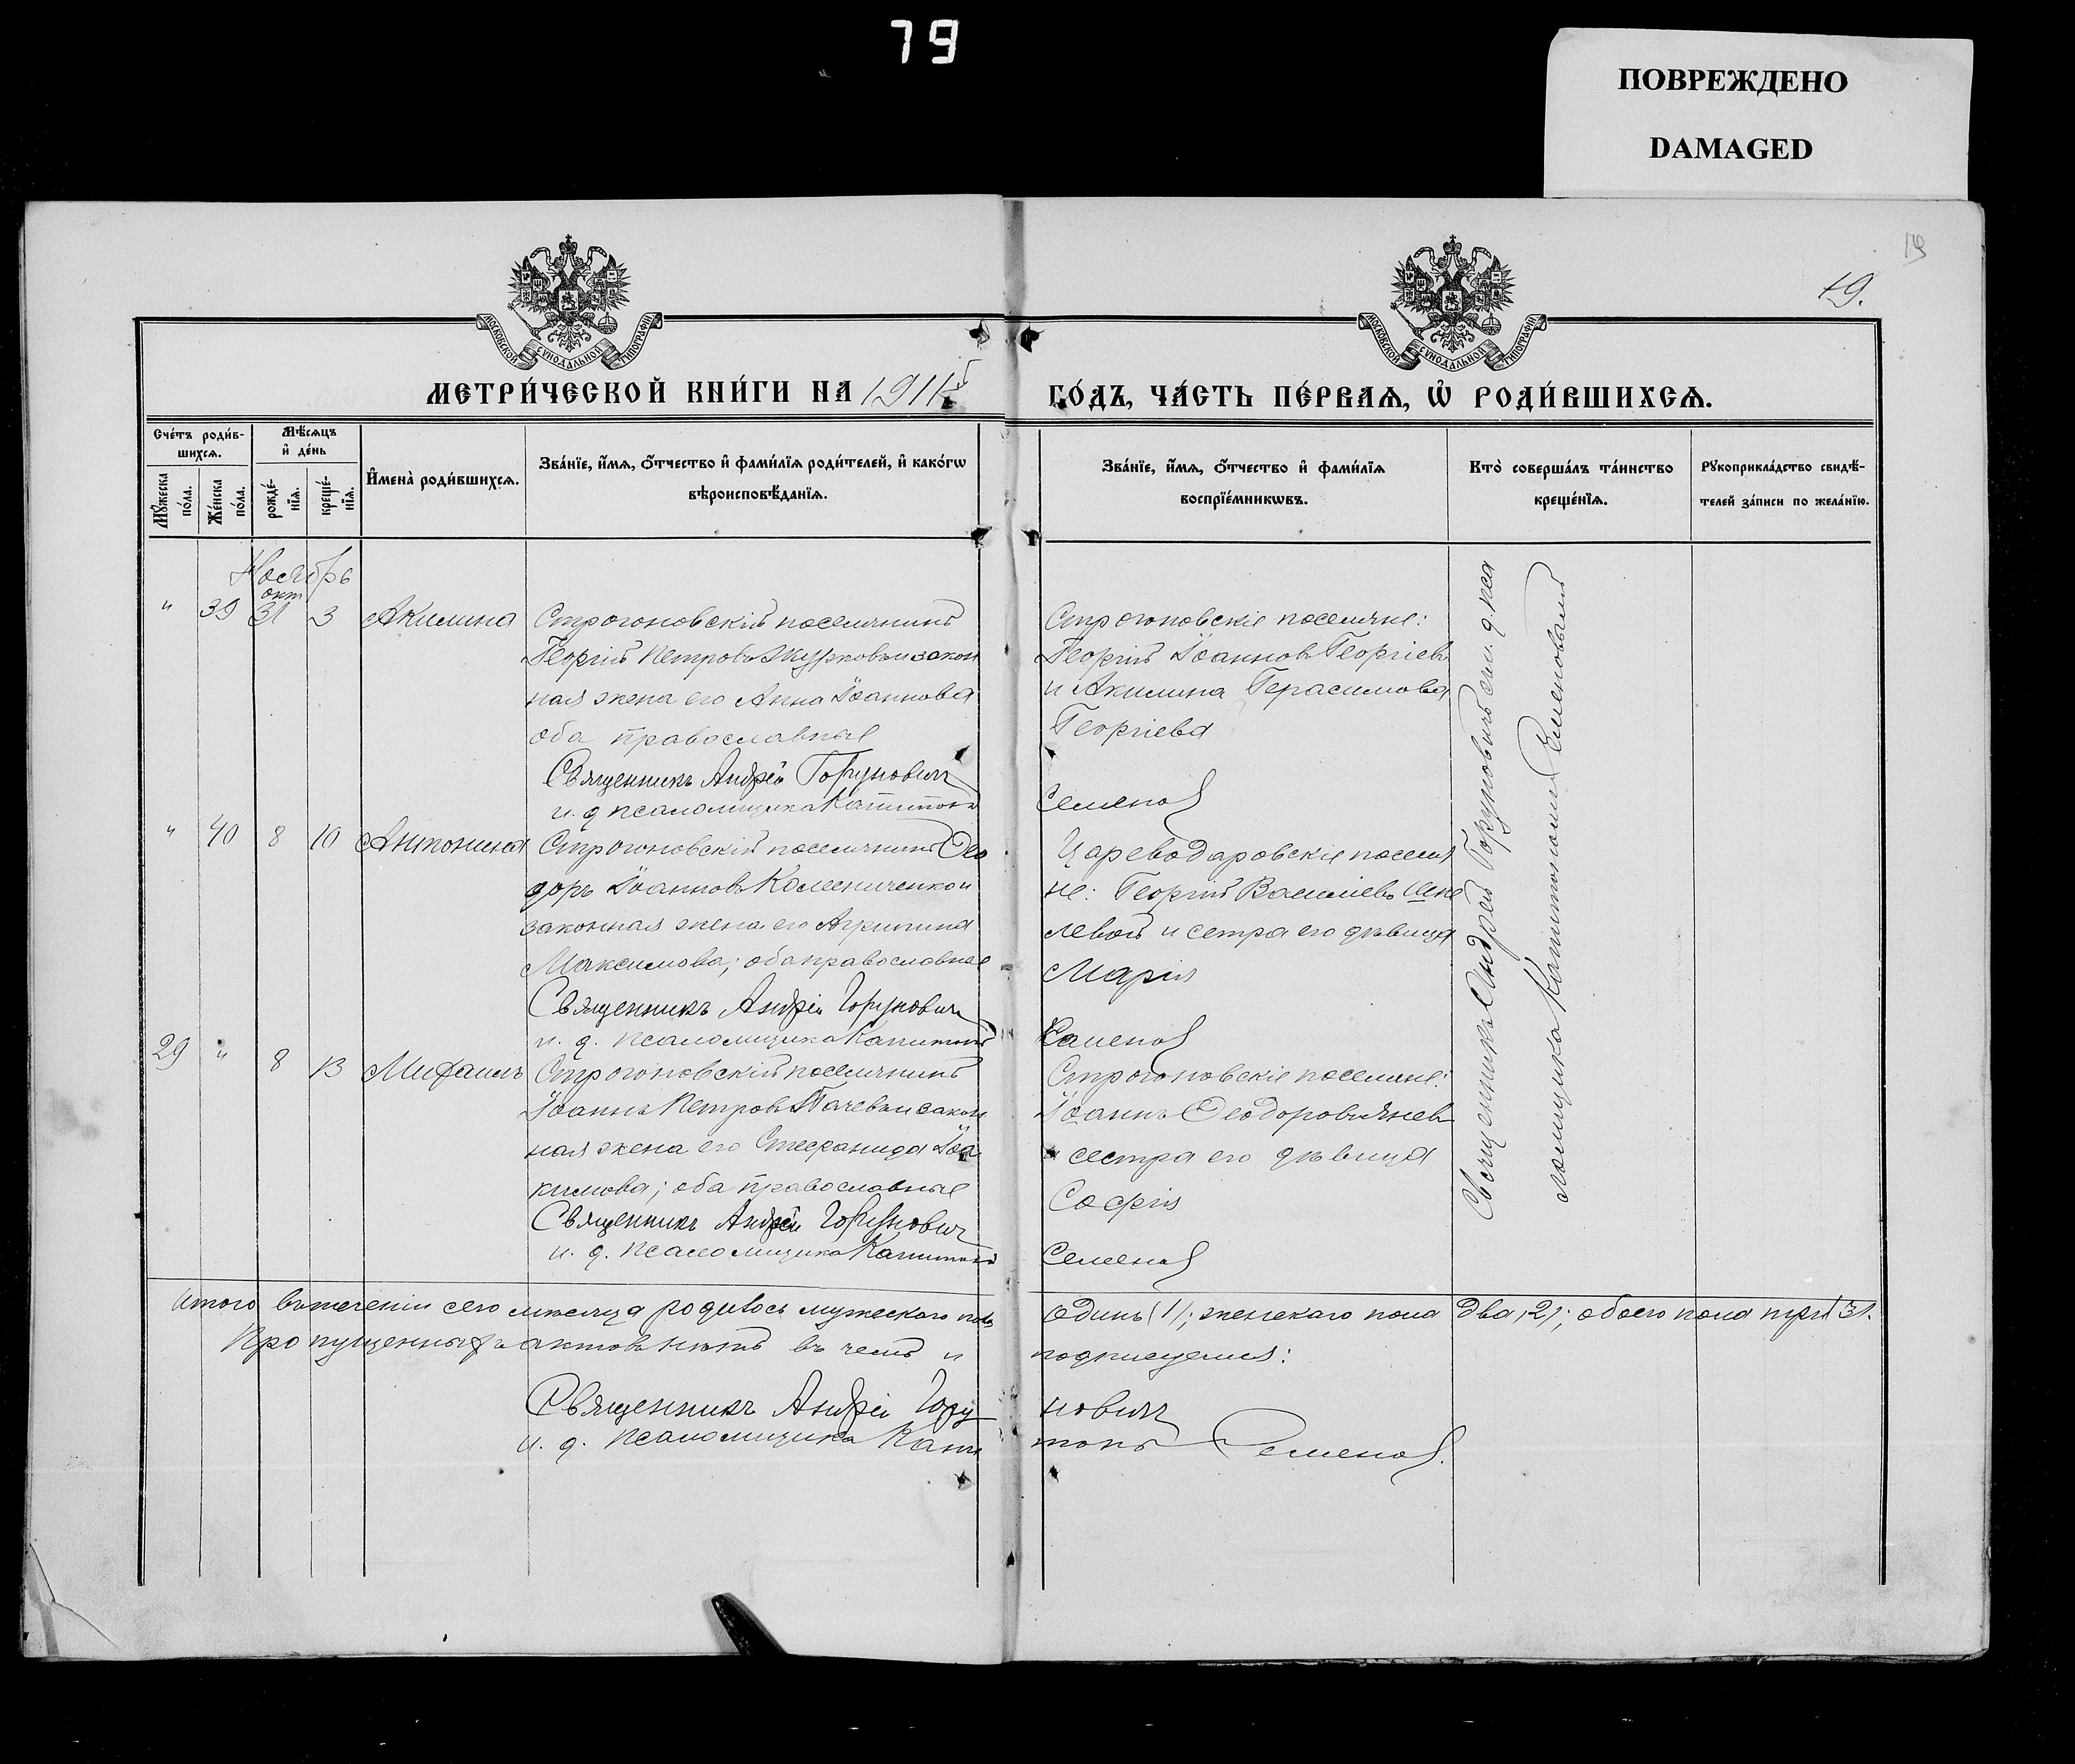 79
ПОВРЕЖДЕНО
DAMAGED
19
19.
МОСКОВСКОЙ СѴНОДАЛЬНОЙ ТИПОГРАФІИ
МОСКОВСКОЙ СѴНОДАЛЬНОЙ ТИПОГРАФІИ
МЕТРИ́ЧЕСКОЙ КНИ́ГИ НА 1911й
ГО́ДЪ, ЧА́СТЬ ПЕ́РВАѦ, Ѡ҆ РОДИ́ВШИХСѦ.
Сче́тъ роди́в-
шихсѧ.
Мѣ́сѧцъ
и҆ де́нь
Мꙋ́жеска
по́ла.
Же́нска
по́ла.
рожде́-
нїѧ.
креще́-
нїѧ.
И҆мена̀ роди́вшихсѧ.
Зва́нїе, и҆́мѧ, ѻ҆́тчество и҆ фами́лїѧ роди́телей, и҆ како́гѡ
вѣроисповѣ́данїѧ.
Зва́нїе, и҆́мѧ, ѻ҆́тчество и҆ фами́лїѧ
воспрїе́мникѡвъ.
Кто̀ соверша́лъ та́инство
креще́нїѧ.
Рꙋкоприкла́дство свидѣ́-
телей за́писи по жела́нїю.
Ноябрь
окт
" 39 31 3 Акилина
Строгоновскій поселянинъ
Георгій Петровъ Жуковъ и закон
ная жена его Анна Іоаннова
оба православные
Священникъ Андрей Горуновичъ
и. д псаломщика Капитонъ
Строгоновскіе поселяне:
Георгій Іоанновъ Георгіевъ
и Акилина Герасимова
Георгіева
Семеновъ
" 40 8 10 Антонина
Строгоновскій поселянинъ Ѳео
доръ Іоанновъ Колениченко и
законная жена его Агрипина
Максимова; оба православные
Священникъ Андрей Горуновичъ
и. д. псаломщика Капитонъ
Цареводаровскіе поселя
не: Георгій Василіевъ
левой и сетра его дѣвица
Марія
Семеновъ
29 " 8 13 Михаилъ
Строгоновскій поселянинъ
Іоаннъ Петровъ Тачевъ и закон
ная жена его Стефанида Іоа
кимова; оба православные
Священникъ Андрей Горуновичъ
и. д. псаломщика Капитонъ
Строгоновскіе поселяне:
Іоаннъ Ѳеодоровъ Яневъ
и сестра его дѣвица
Софія
Семеновъ
Священникъ Андрей Горуновичъ съ и. д. пса
ломщика Капитономъ Семеновымъ
Итого втеченіи сего мѣсяца родилось мужескаго пола
Одинъ (1); женскаго пола два (2); обоего пола три (3).
Пропущенныхъ актовъ нѣтъ въ чемъ и
подписуемся:
Священникъ Андрей Гору
новичъ
и. д. псаломщика Капи
тонъ Семеновъ.